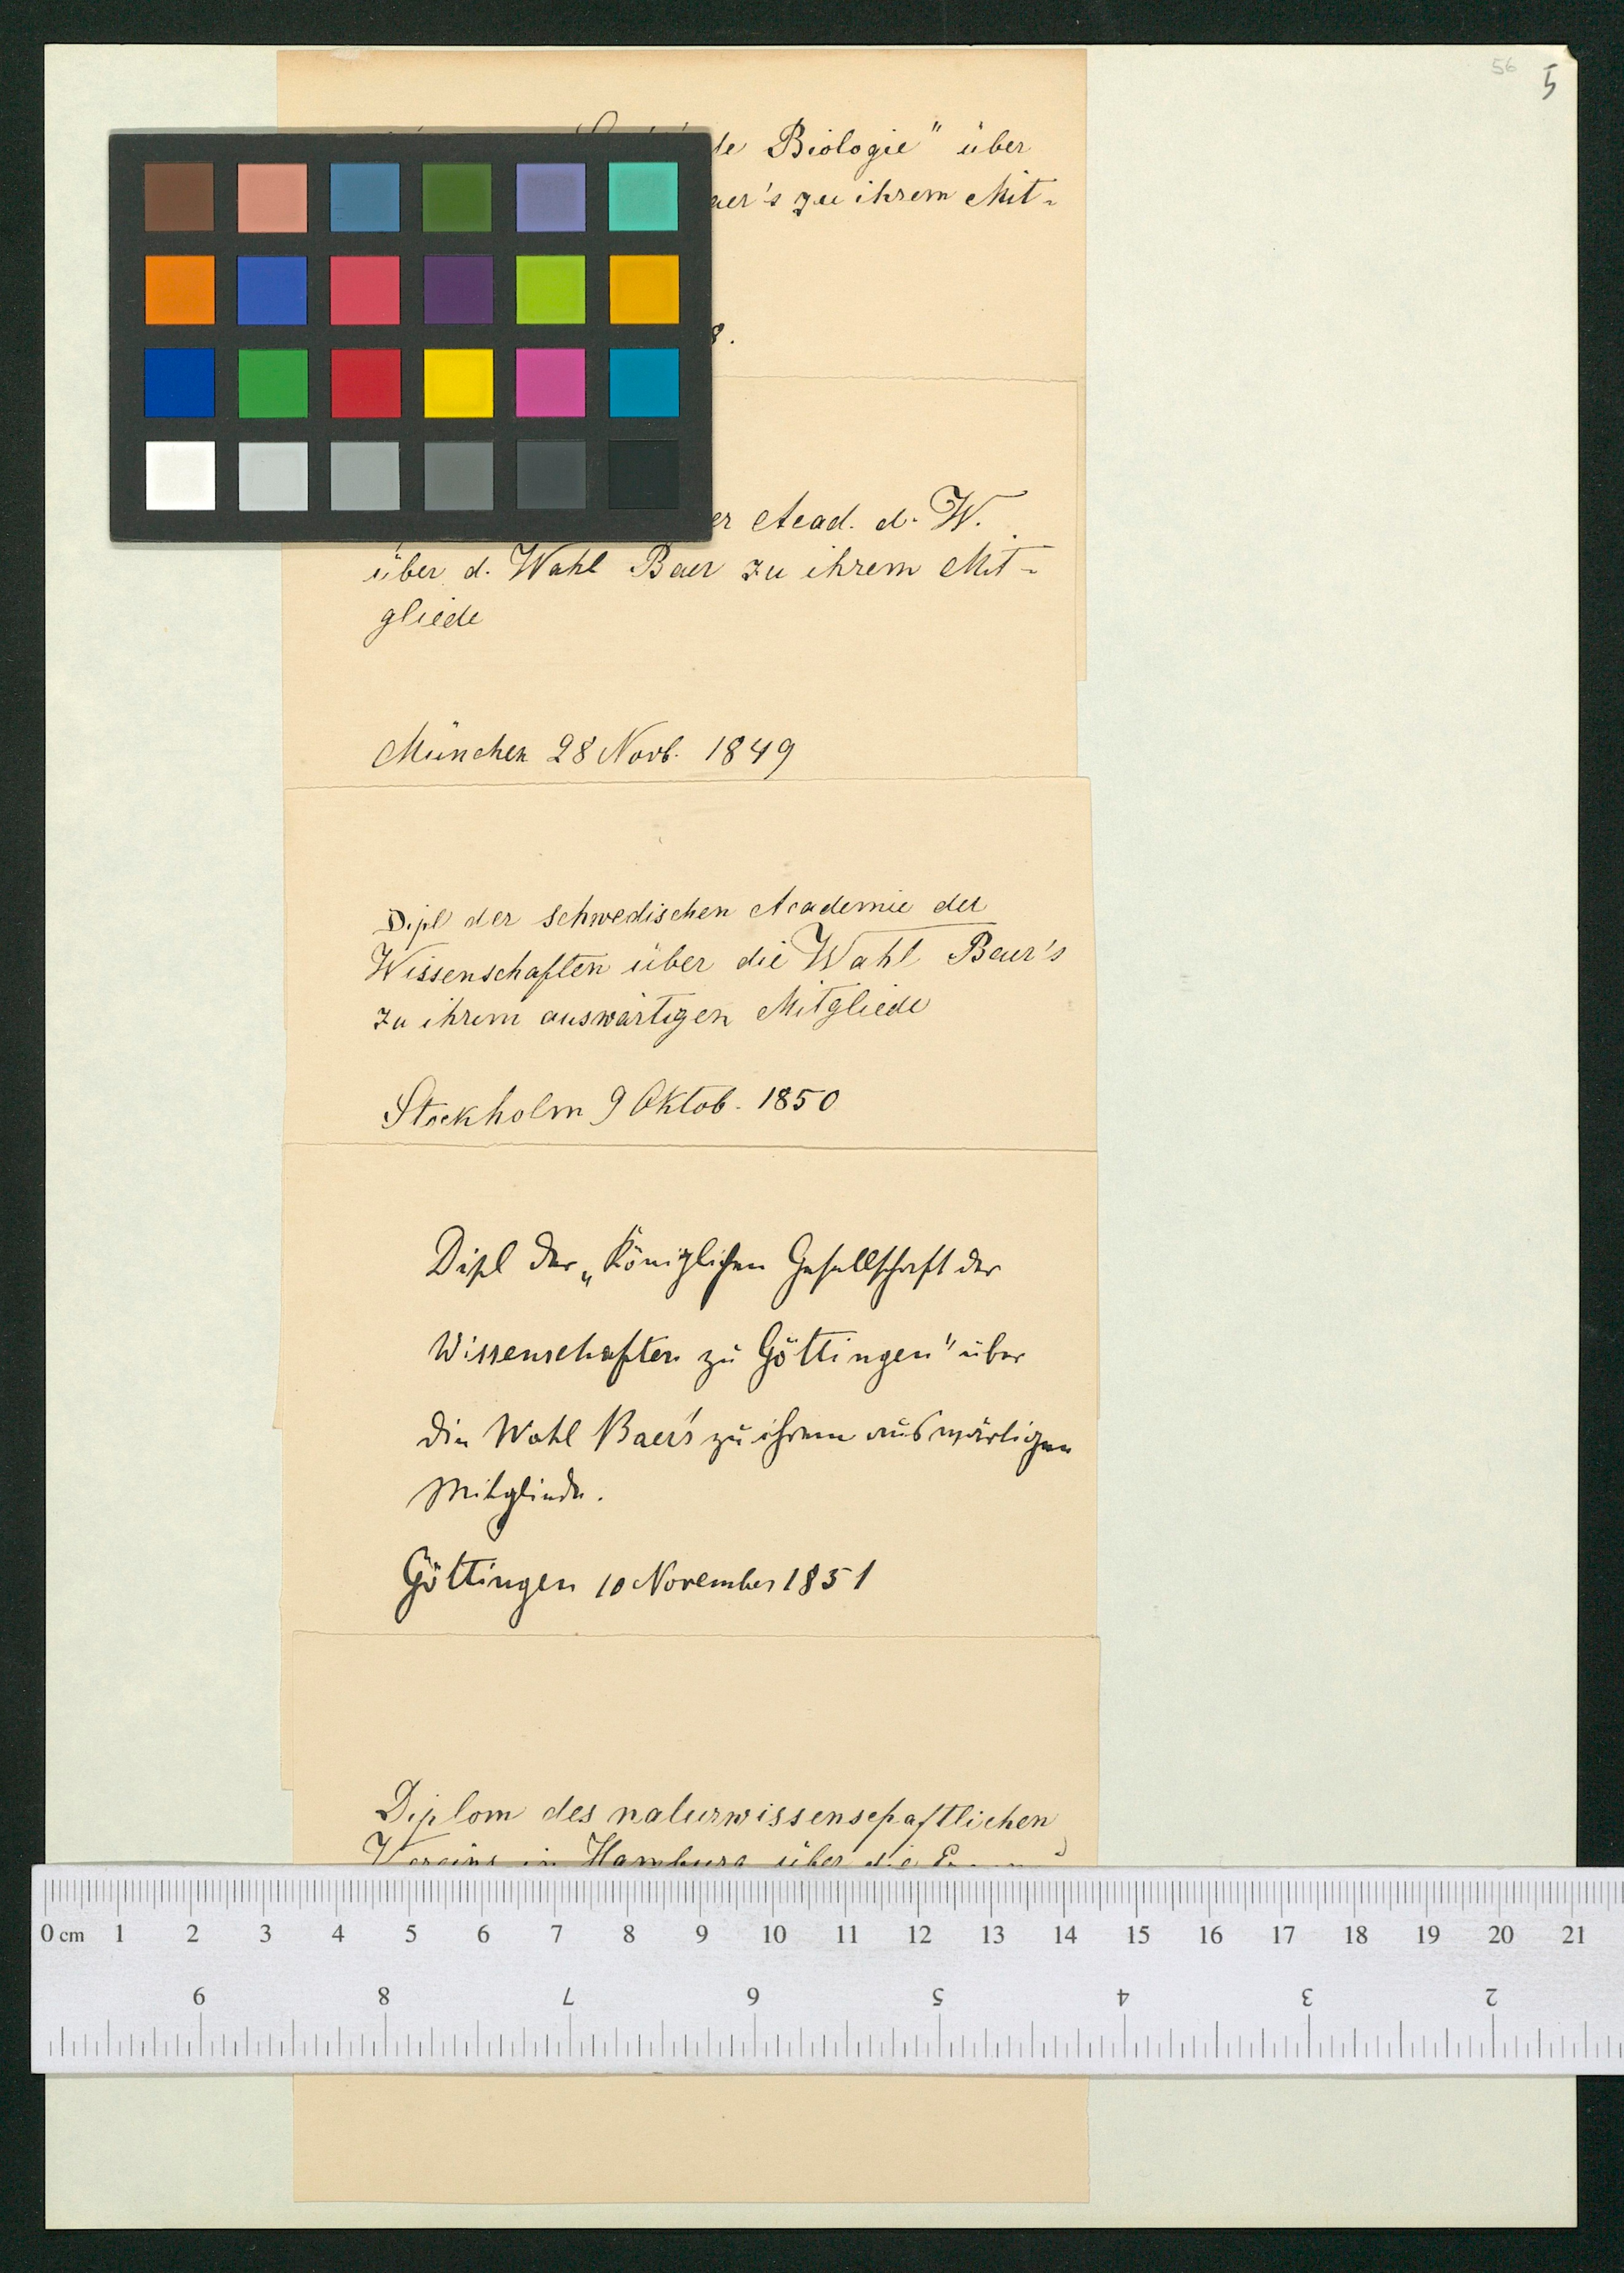 56 5
Biologie" über
zu ihrem Mit-
8.
Acad. d. W.
über d. Wahl Baer zu ihrem Mit-
gliede
München 28 Novb. 1849
Dipl der schwedischen Academie der
Wissenschaften über die Wahl Baer's
zu ihrem auswärtigen Mitgliede
Stockholm 9 Oktob. 1850
Dipl der „Königlichen Gesellschaft der
Wissenschaften zu Göttingen" über
die Wahl Baer's zu ihrem auswärtigen
Mitgliede.
Göttingen 10 November 1851
Diplom des naturwissenschaftlichen
Vereins in Hamburg über die
0 cm 1 2 3 4 5 6 7 8 9 10 11 12 13 14 15 16 17 18 19 20 21
9 8 7 6 5 4 3 2